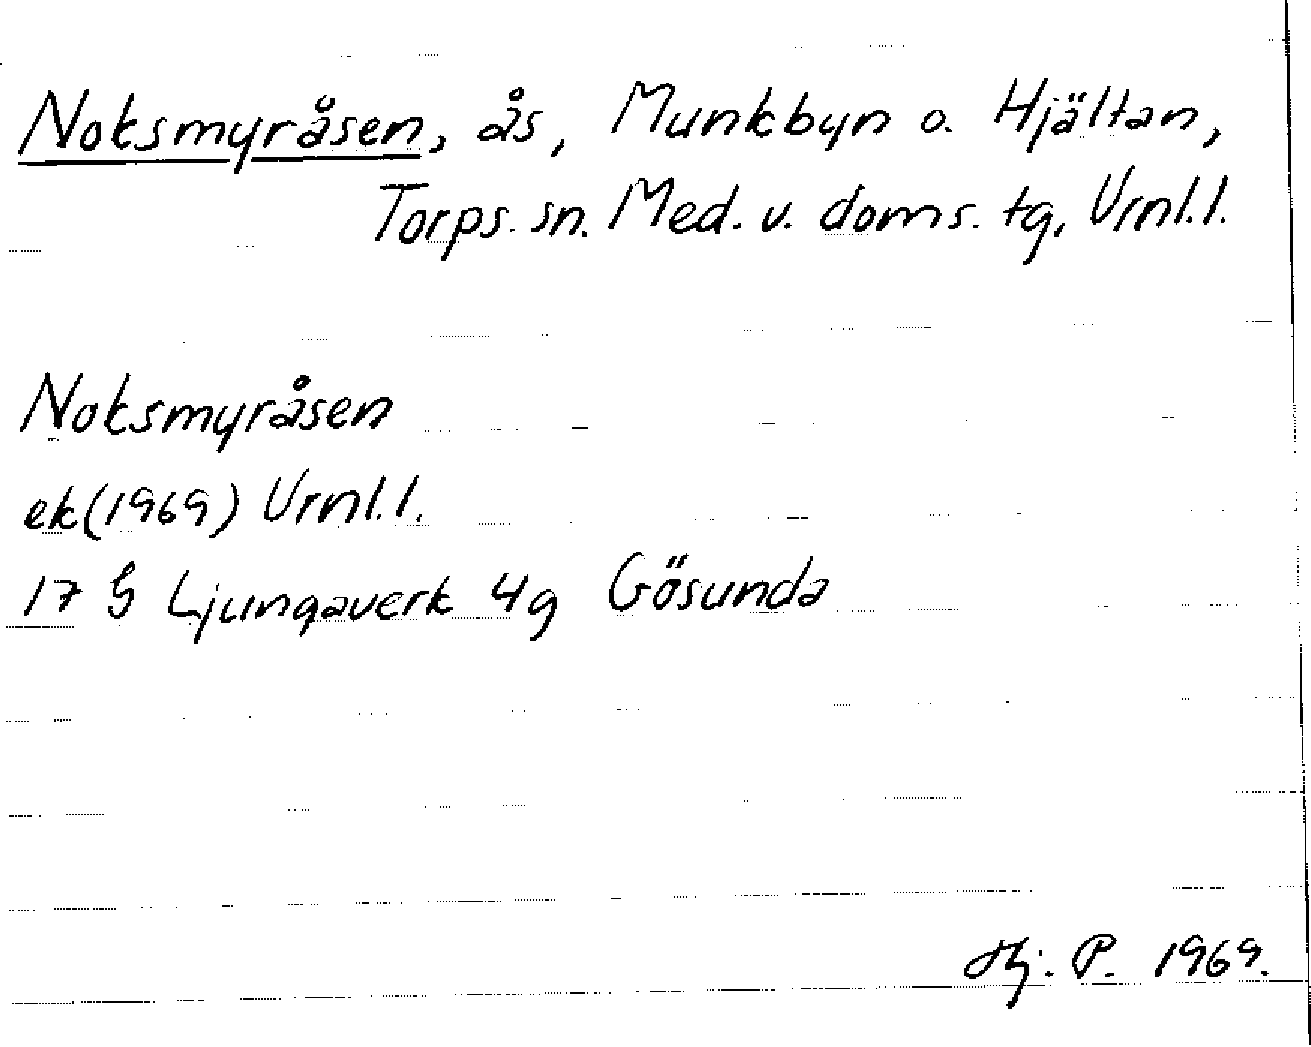 Noksmyråsen, ås, Munkbyn o. Hjältan,
Torps. sn. Med. v. doms. tg, Vrnl.l.
Noksmyråsen
ek(1969) Vrnl.l.
17 G Ljungaverk 4g Gösunda
Hj. P. 1969.